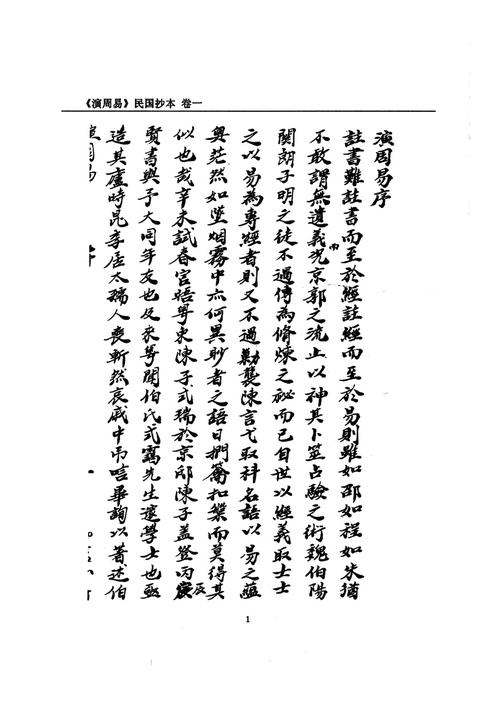 《演周易》民国抄本 卷一
演周易序
註書難註書而至於經註經而至於易則雖如邵如程如朱猶
不敢謂無遺義况京郭之流止以神其卜筮占驗之術魏伯陽
関朗子明之徒不過傳為脩煉之祕而已自世以經義取士士
之以易為專經者則又不過勦襲陳言弋取科名語以易之蘊
奥茫然如墜烟霧中亦何異眇者之語日捫籥扣槃而莫得其
似也哉辛未試春官晤粤東陳子式瑞於京邸陳子盖登丙辰
賢書與予大同年友也及來粤聞伯氏式窩先生邃學士也亟
造其廬時昆季居太孺人喪斬然哀戚中吊唁畢詢以著述伯
演周易
1